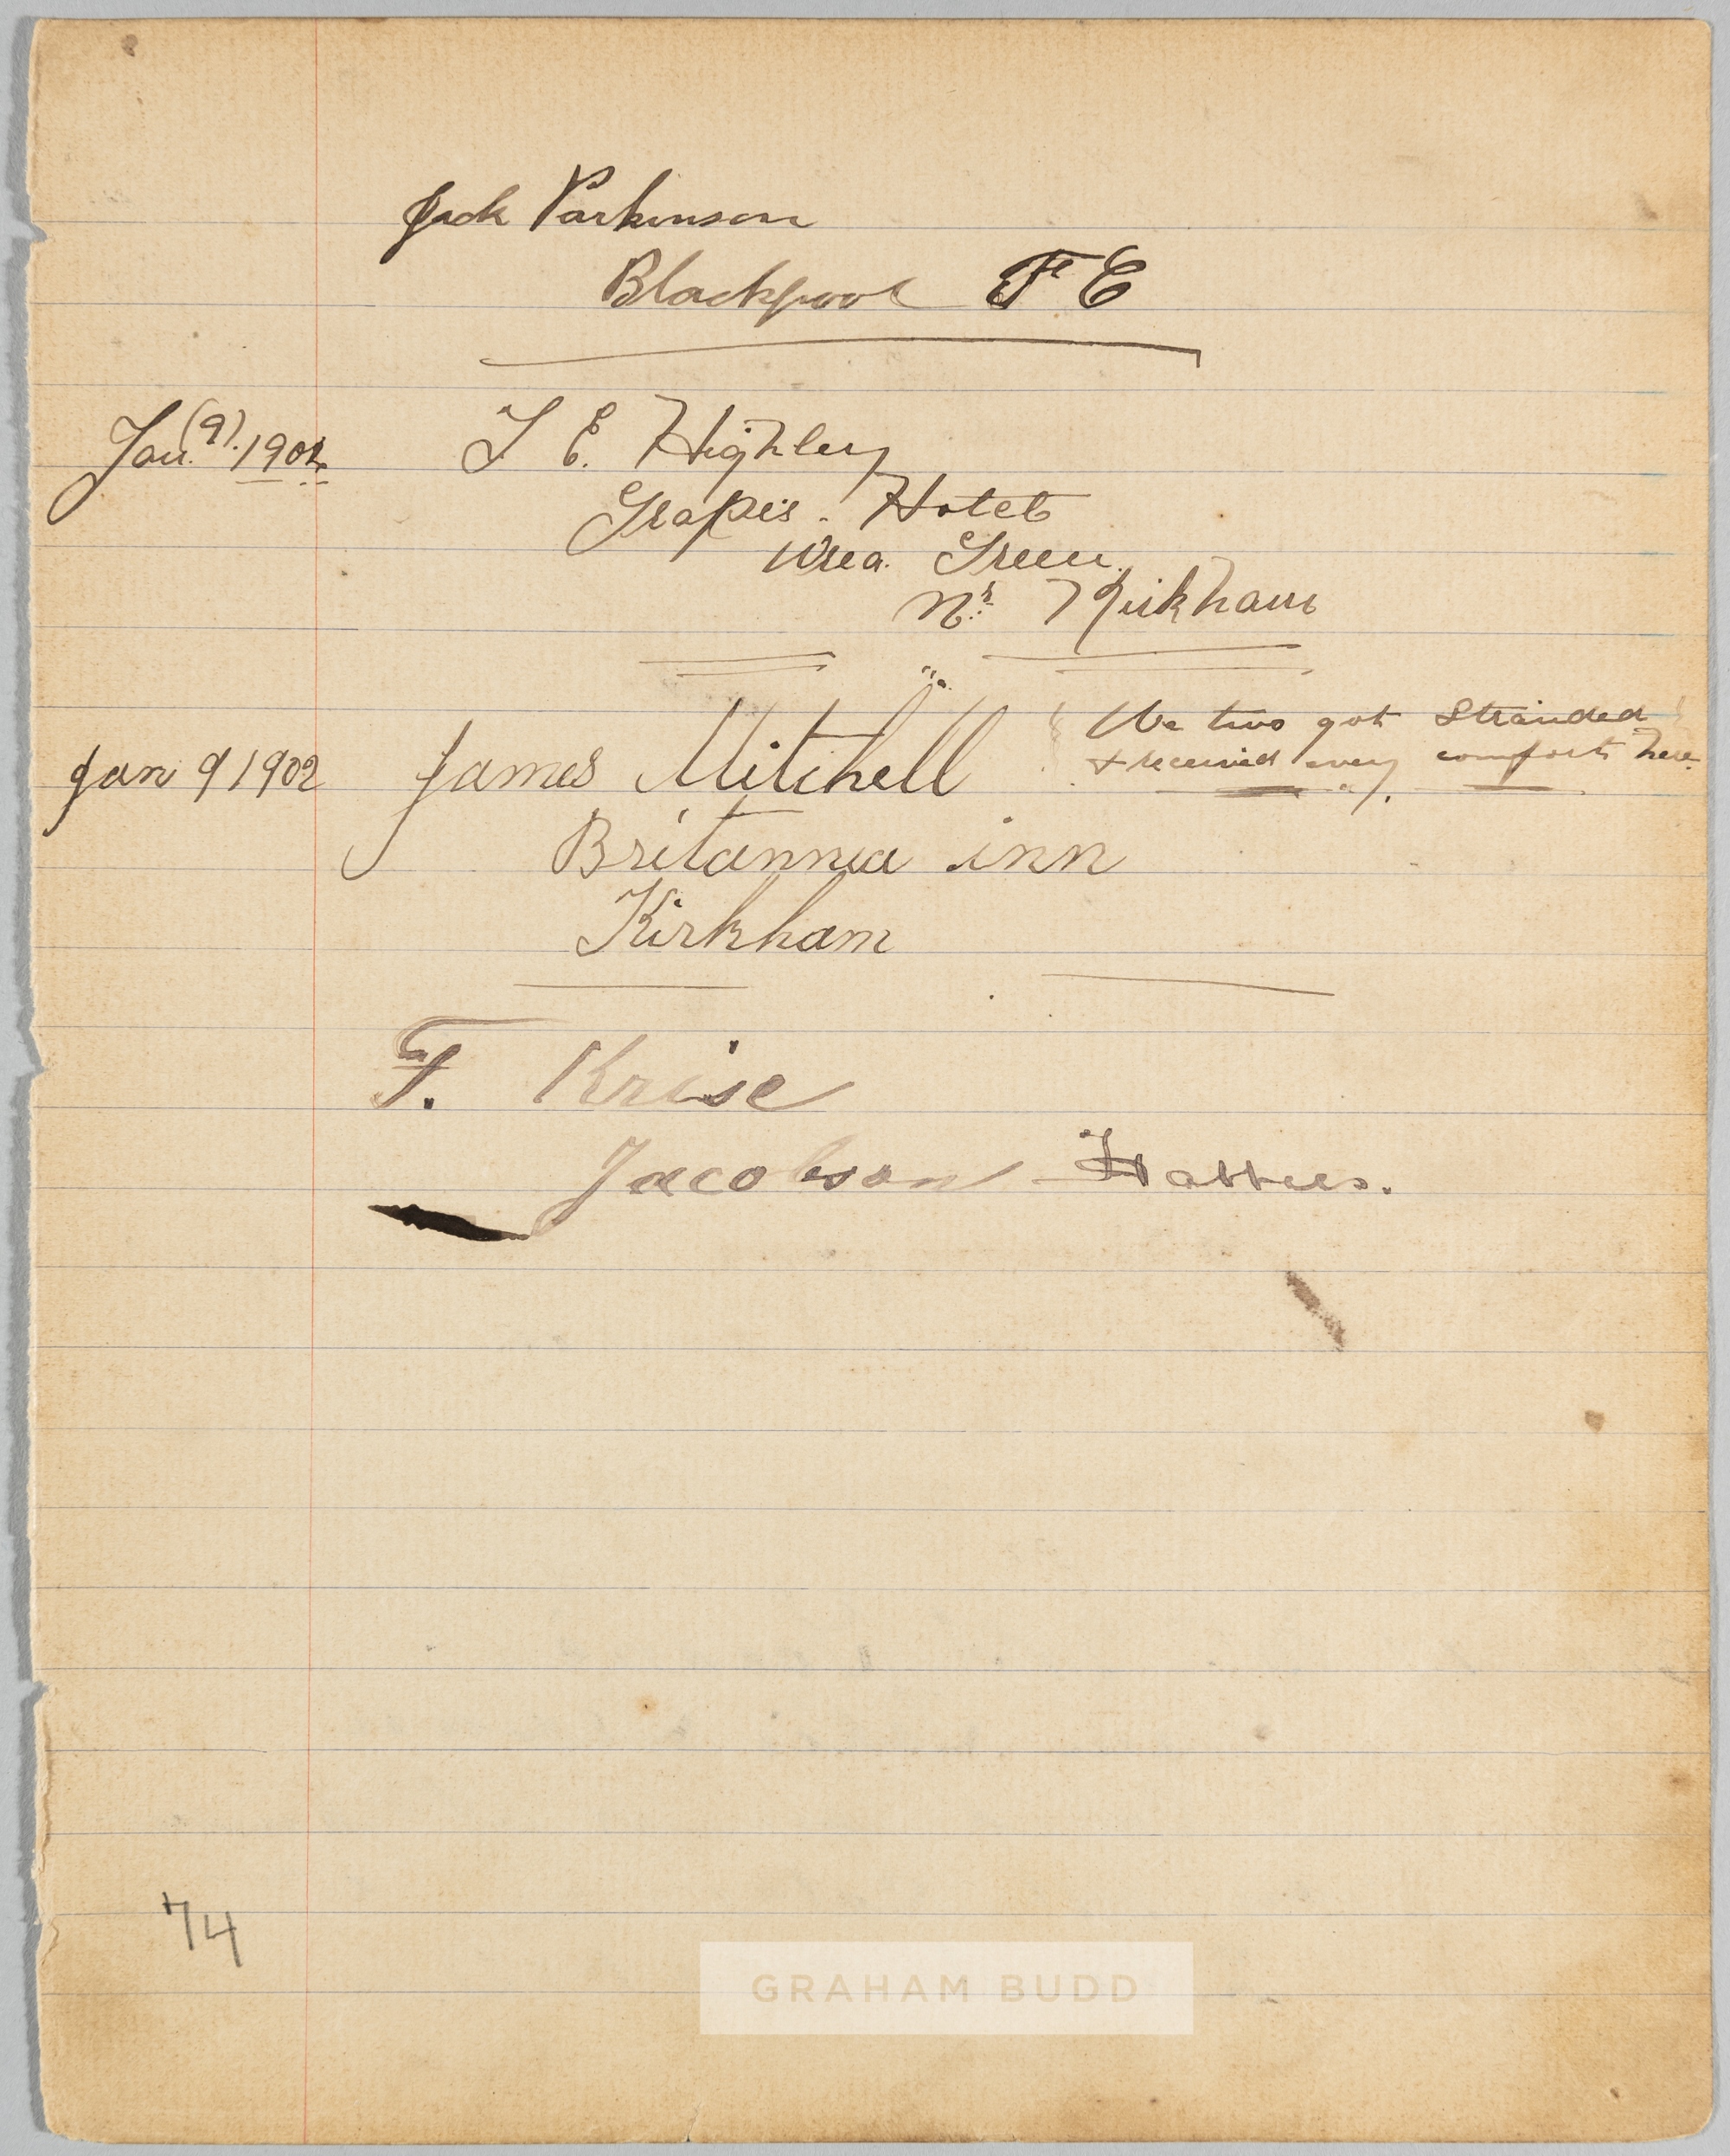 Jack Parkinson
Blackpool F C
Jan. (9). 1902 T E. Highley
Grapes. Hotel
Wrea. Green.
Nr. Kirkham
Jan 9 1902 James Mitchell
We two got stranded
& received every comfort here.
Britannia inn
Kirkham
F. Krise
Jacobson Hatters.
74
GRAHAM BUDD